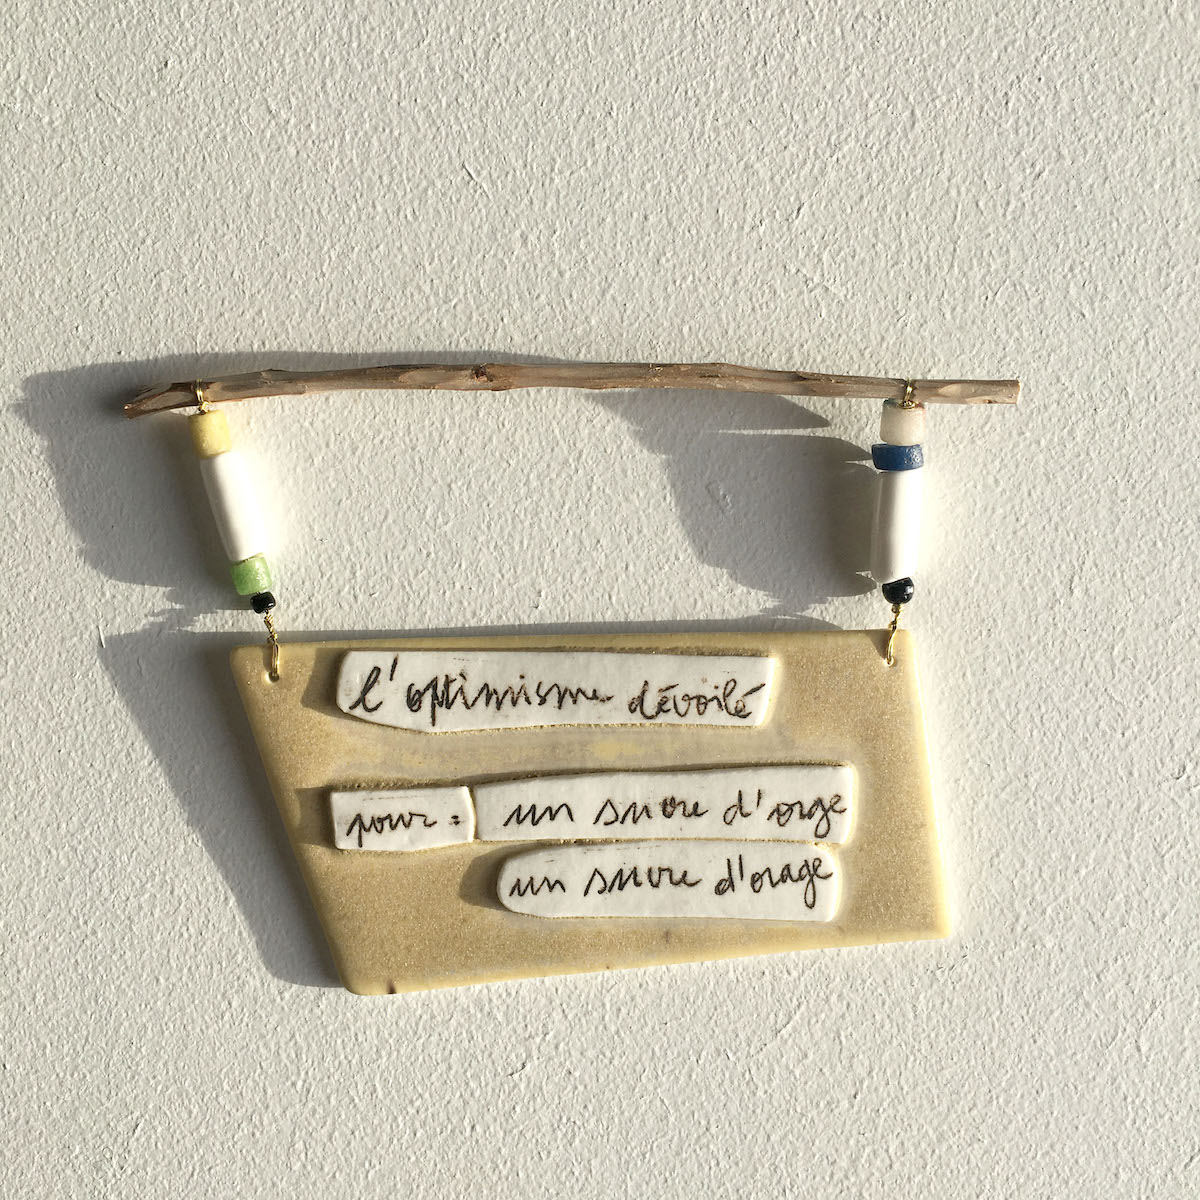 l'optimisme dévoilé
pour : un sucre d'orge
un sucre d'orage